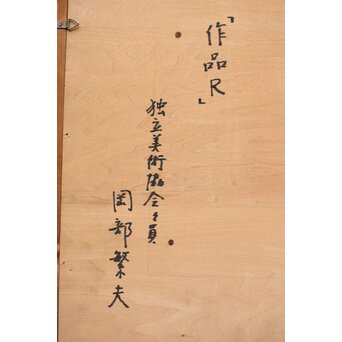 「作品R」
独立美術協会々員
岡部繁夫